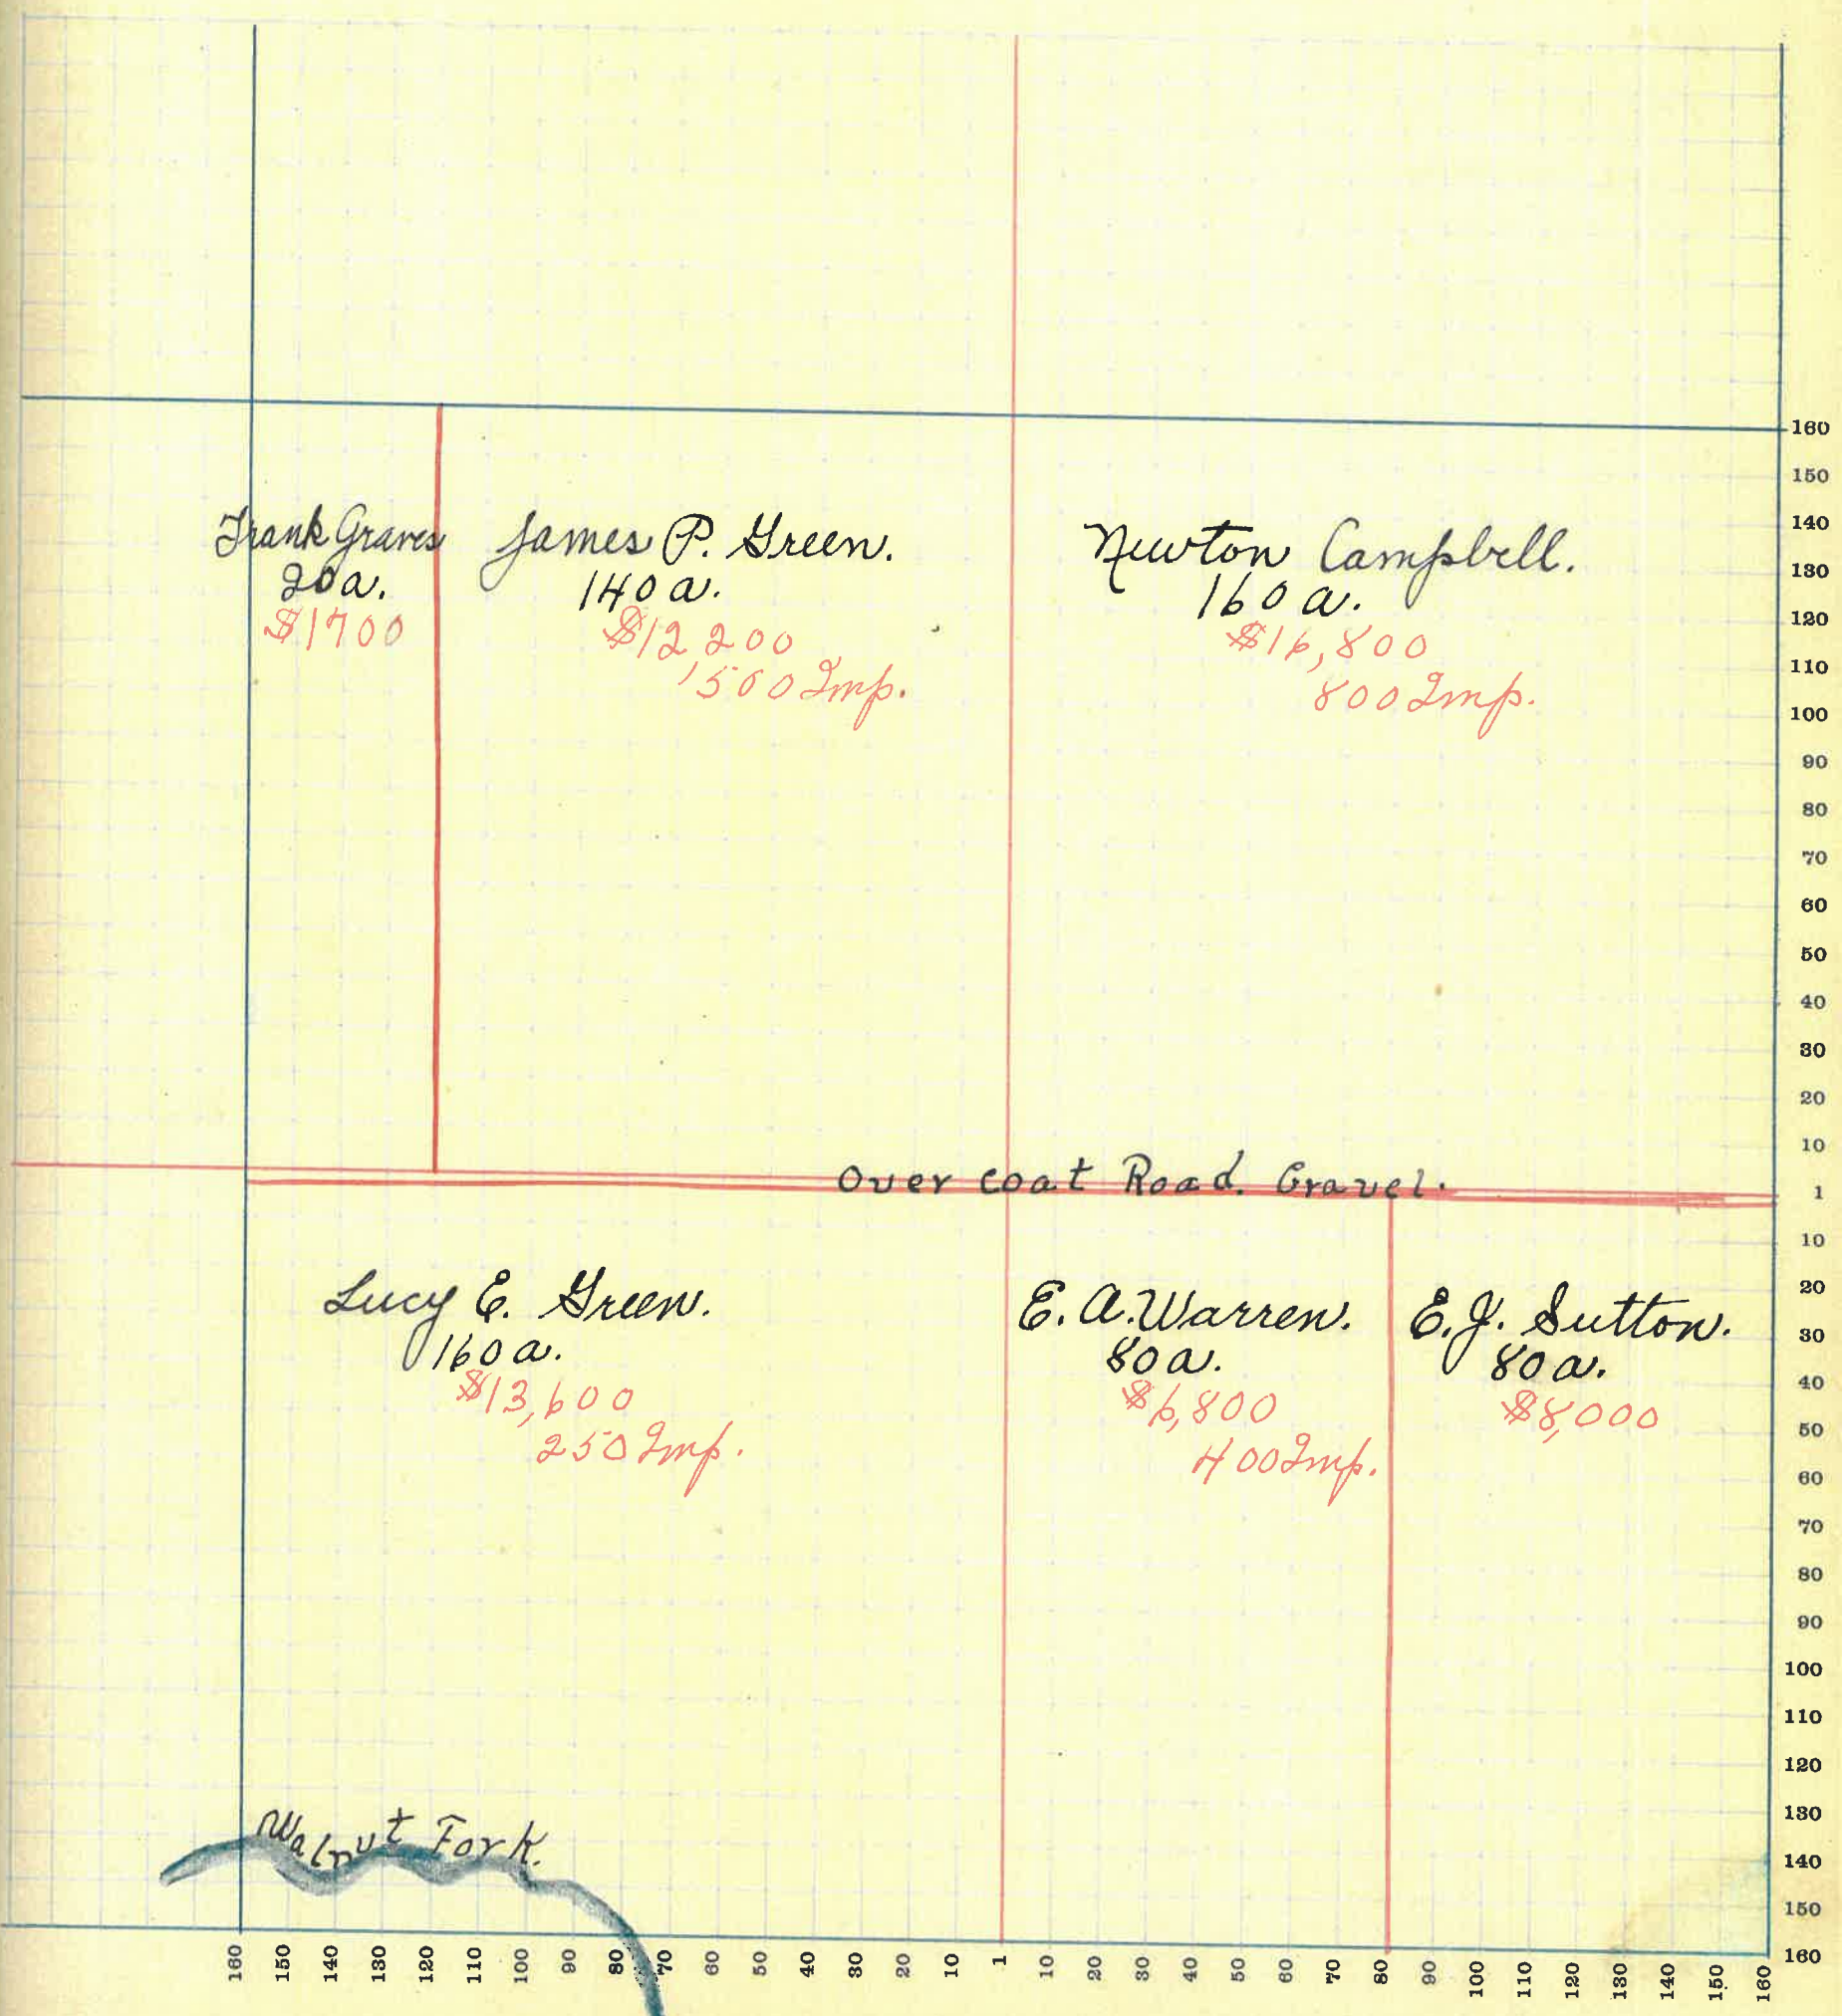 Frank Graves
20a.
$1700
James P. Green.
140 a.
$12,200
1500 Imp.
Newton Campbell.
160 a.
$16,800
800 Imp.
Over Coat Road. Gravel.
Lucy E. Green.
160 a.
$13,600
250 Imp.
E. A. Warren.
80 a.
$6,800
400 Imp.
E. J. Sutton.
80 a.
$8,000
Walnut Fork.
160
150
140
130
120
110
100
90
80
70
60
50
40
30
20
10
1
10
20
30
40
50
60
70
80
90
100
110
120
130
140
150
160
160 150 140 130 120 110 100 90 80 70 60 50 40 30 20 10 1 10 20 30 40 50 60 70 80 90 100 110 120 130 140 150 160